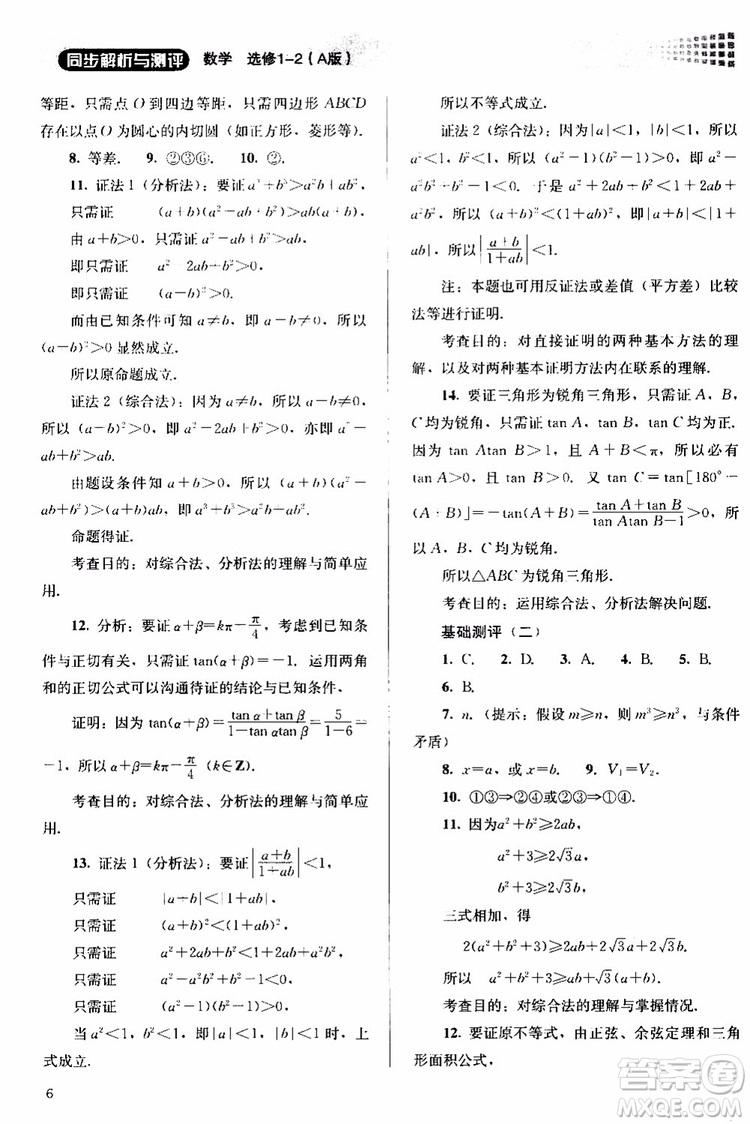 同步解析与测评 数学 选修1-2(A版)
等距，只需点 O 到四边等距，只需四边形 ABCD
存在以点 O 为圆心的内切圆（如正方形，菱形等).
8. 等差. 9. ②③⑥. 10. ②.
11. 证法 1（分析法)：要证a³+b³>a²b+ab²，
只需证 (a+b)(a²-ab+b²)>ab(a+b).
由 a+b>0，只需证 a²-ab+b²>ab，
即只需证 a² 2ab+b²>0，
即只需证 (a-b)²>0.
而由已知条件可知 a≠b，所以 a-b≠0，所以
(a-b)²>0 显然成立.
所以原命题成立.
证法 2（综合法)：因为 a≠b，所以 a-b≠0，
所以 (a-b)²>0，即 a²-2ab+b²>0，亦即 a²-
ab+b²>ab.
由题设条件知 a+b>0，所以(a+b)(a²-
ab+b²)>(a+b)ab，即 a³+b³>a²b+ab².
命题得证.
考查目的：对综合法、分析法的理解与简单应
用.
12. 分析：要证 α+β=kπ-π/4，考虑到已知条
件与正切有关，只需证 tan(α+β)=-1. 运用两角
和的正切公式可以沟通待证的结论与已知条件.
证明：因为 tan(α+β)=(tan α+tan β)/(1-tan αtan β)=5/(1-6)=
-1，所以 α+β=kπ-π/4 (k∈Z).
考查目的：对综合法、分析法的理解与简单应
用.
13. 证法 1（分析法)：要证|(a+b)/(1+ab)|<1，
只需证 |a+b|<|1+ab|，
只需证 (a+b)²<(1+ab)²，
只需证 a²+2ab+b²<1+2ab+a²b²，
只需证 a²+b²<1+a²b²，
只需证 (a²-1)(b²-1)>0.
当 a²<1，b²<1，即|a|<1，|b|<1 时，上
式成立.
6
所以不等式成立.
证法 2（综合法)：因为|a|<1，|b|<1，所以
a²<1，b²<1，所以(a²-1)(b²-1)>0. 于是 a²+
b²<1+a²b²，a²+2ab+b²<1+2ab+a²b²，
即 (a+b)²<(1+ab)². 所以|a+b|<|1+
ab|，所以|(a+b)/(1+ab)|<1.
注：本题也可用反证法或差值（平方差）比较
法等进行证明.
考查目的：对直接证明的两种基本方法的理
解，以及对两种基本证明方法内在联系的理解.
14. 要证三角形为锐角三角形，只需证 A，B，
C 均为锐角，只需证 tan A，tan B，tan C 均为正.
因为 tan Atan B>1，且 A，B，C<π，所以
tan A>0，tan B>0. 又 tan C=tan[180°-
(A+B)]=-tan(A+B)=(tan A+tan B)/(tan Atan B-1)>0，所
以，A，B，C 均为锐角.
所以△ABC 为锐角三角形.
考查目的：运用综合法、分析法解决问题.
基础测评（二）
1. C. 2. D. 3. A. 4. B. 5. B.
6. B.
7. n.（提示：假设 m≥n，则 m³≥n³，与条件
矛盾）
8. x=a，或 x=b. 9. V₁=V₂.
10. ①③⇒②④或②③⇒①④.
11. 因为a²+b²≥2ab，
a²+3≥2√3a，
b²+3≥2√3b，
三式相加，得
2(a²+b²+3)≥2ab+2√3a+2√3b，
所以 a²+b²+3≥ab+√3(a+b).
考查目的：对综合法的理解与掌握情况.
12. 要证原不等式，由正弦、余弦定理和三角
形面积公式，
答案圈